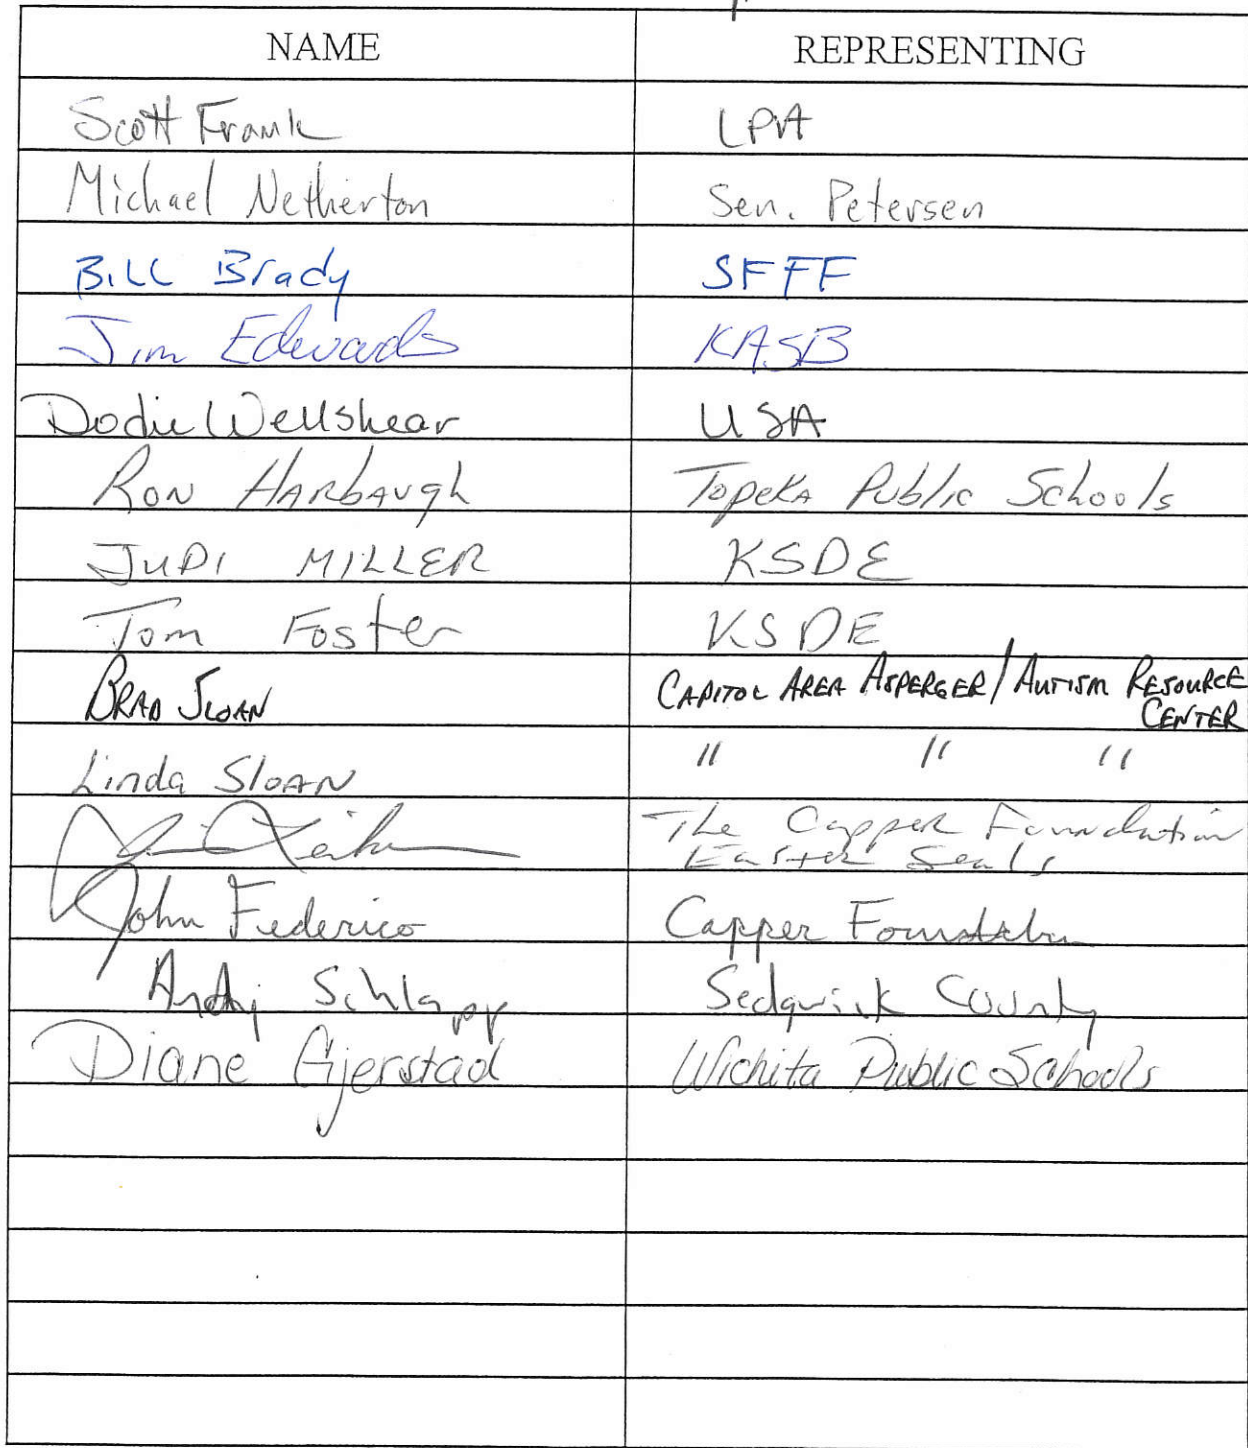 NAME REPRESENTING
Scott Frank LPA
Michael Netherton Sen. Petersen
Bill Brady SFFF
Jim Edwards KASB
Dodie Wellshear USA
Ron Harbaugh Topeka Public Schools
Judi Miller KSDE
Tom Foster KSDE
Brad Sloan Capitol Area Asperger/Autism Resource
Center
Linda Sloan " " "
The Capper Foundation
Easter Seals
John Federico Capper Foundation
Andy Schlapp Sedgwick County
Diane Gjerstad Wichita Public Schools